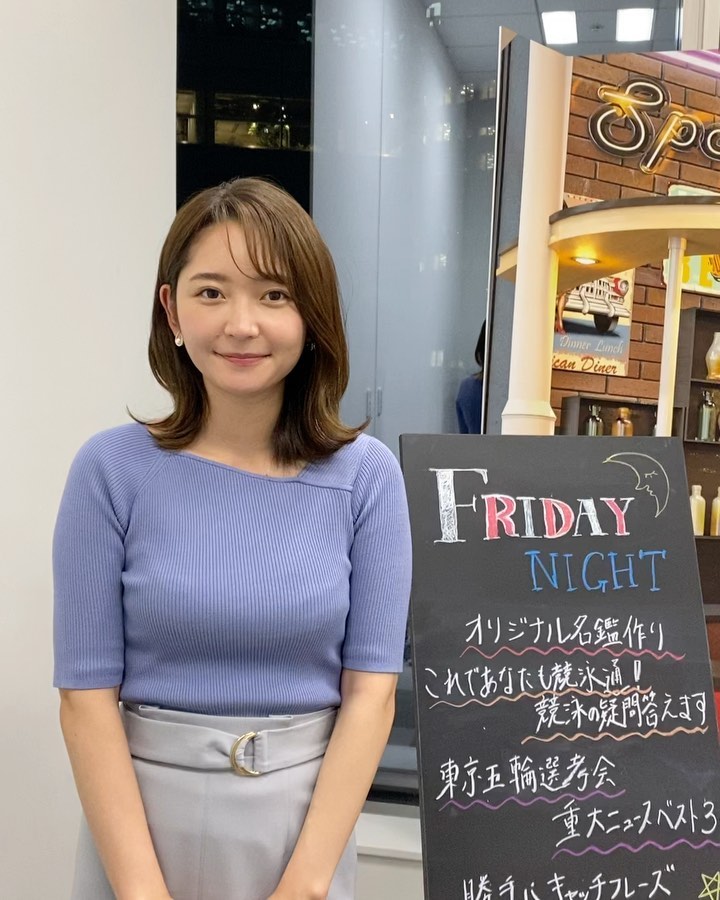 Spo
Dinner Lunch
ican Diner
FRIDAY
NIGHT
オリジナル名鑑作り
これであなたも競泳通!
競泳の疑問答えます
東京五輪選考会
重大ニュースベスト3
勝手にキャッチフレーズ